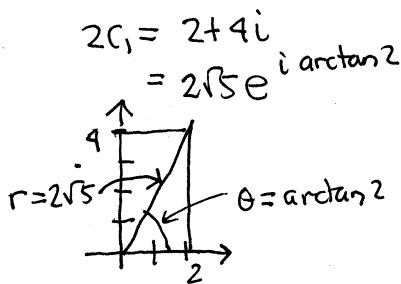 2C₁ = 2+4i
= 2√5 e^{i arctan 2}
4
r = 2√5
θ = arctan 2
2